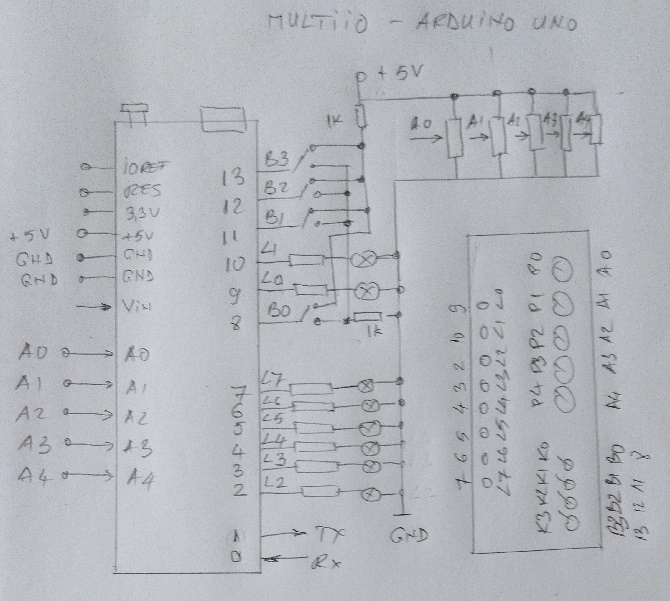 MULTIIO - ARDUINO UNO
+5V
1K
A0 A1 A2 A3 A4
IOREF
RES
3,3V
+5V +5V
GND GND
GND GND
Vin
A0 A0
A1 A1
A2 A2
A3 A3
A4 A4
13 B3
12 B2
11 B1
10 L1
9 L0
8 B0
1K
7 L7
6 L6
5 L5
4 L4
3 L3
2 L2
1 TX
0 RX
GND
7 6 5 4 3 2 10 9
L7 L6 L5 L4 L3 L2 L1 L0
P4 P3 P2 P1 P0
K3 K2 K1 K0
A4 A3 A2 A1 A0
B3 B2 B1 B0
13 12 11 8